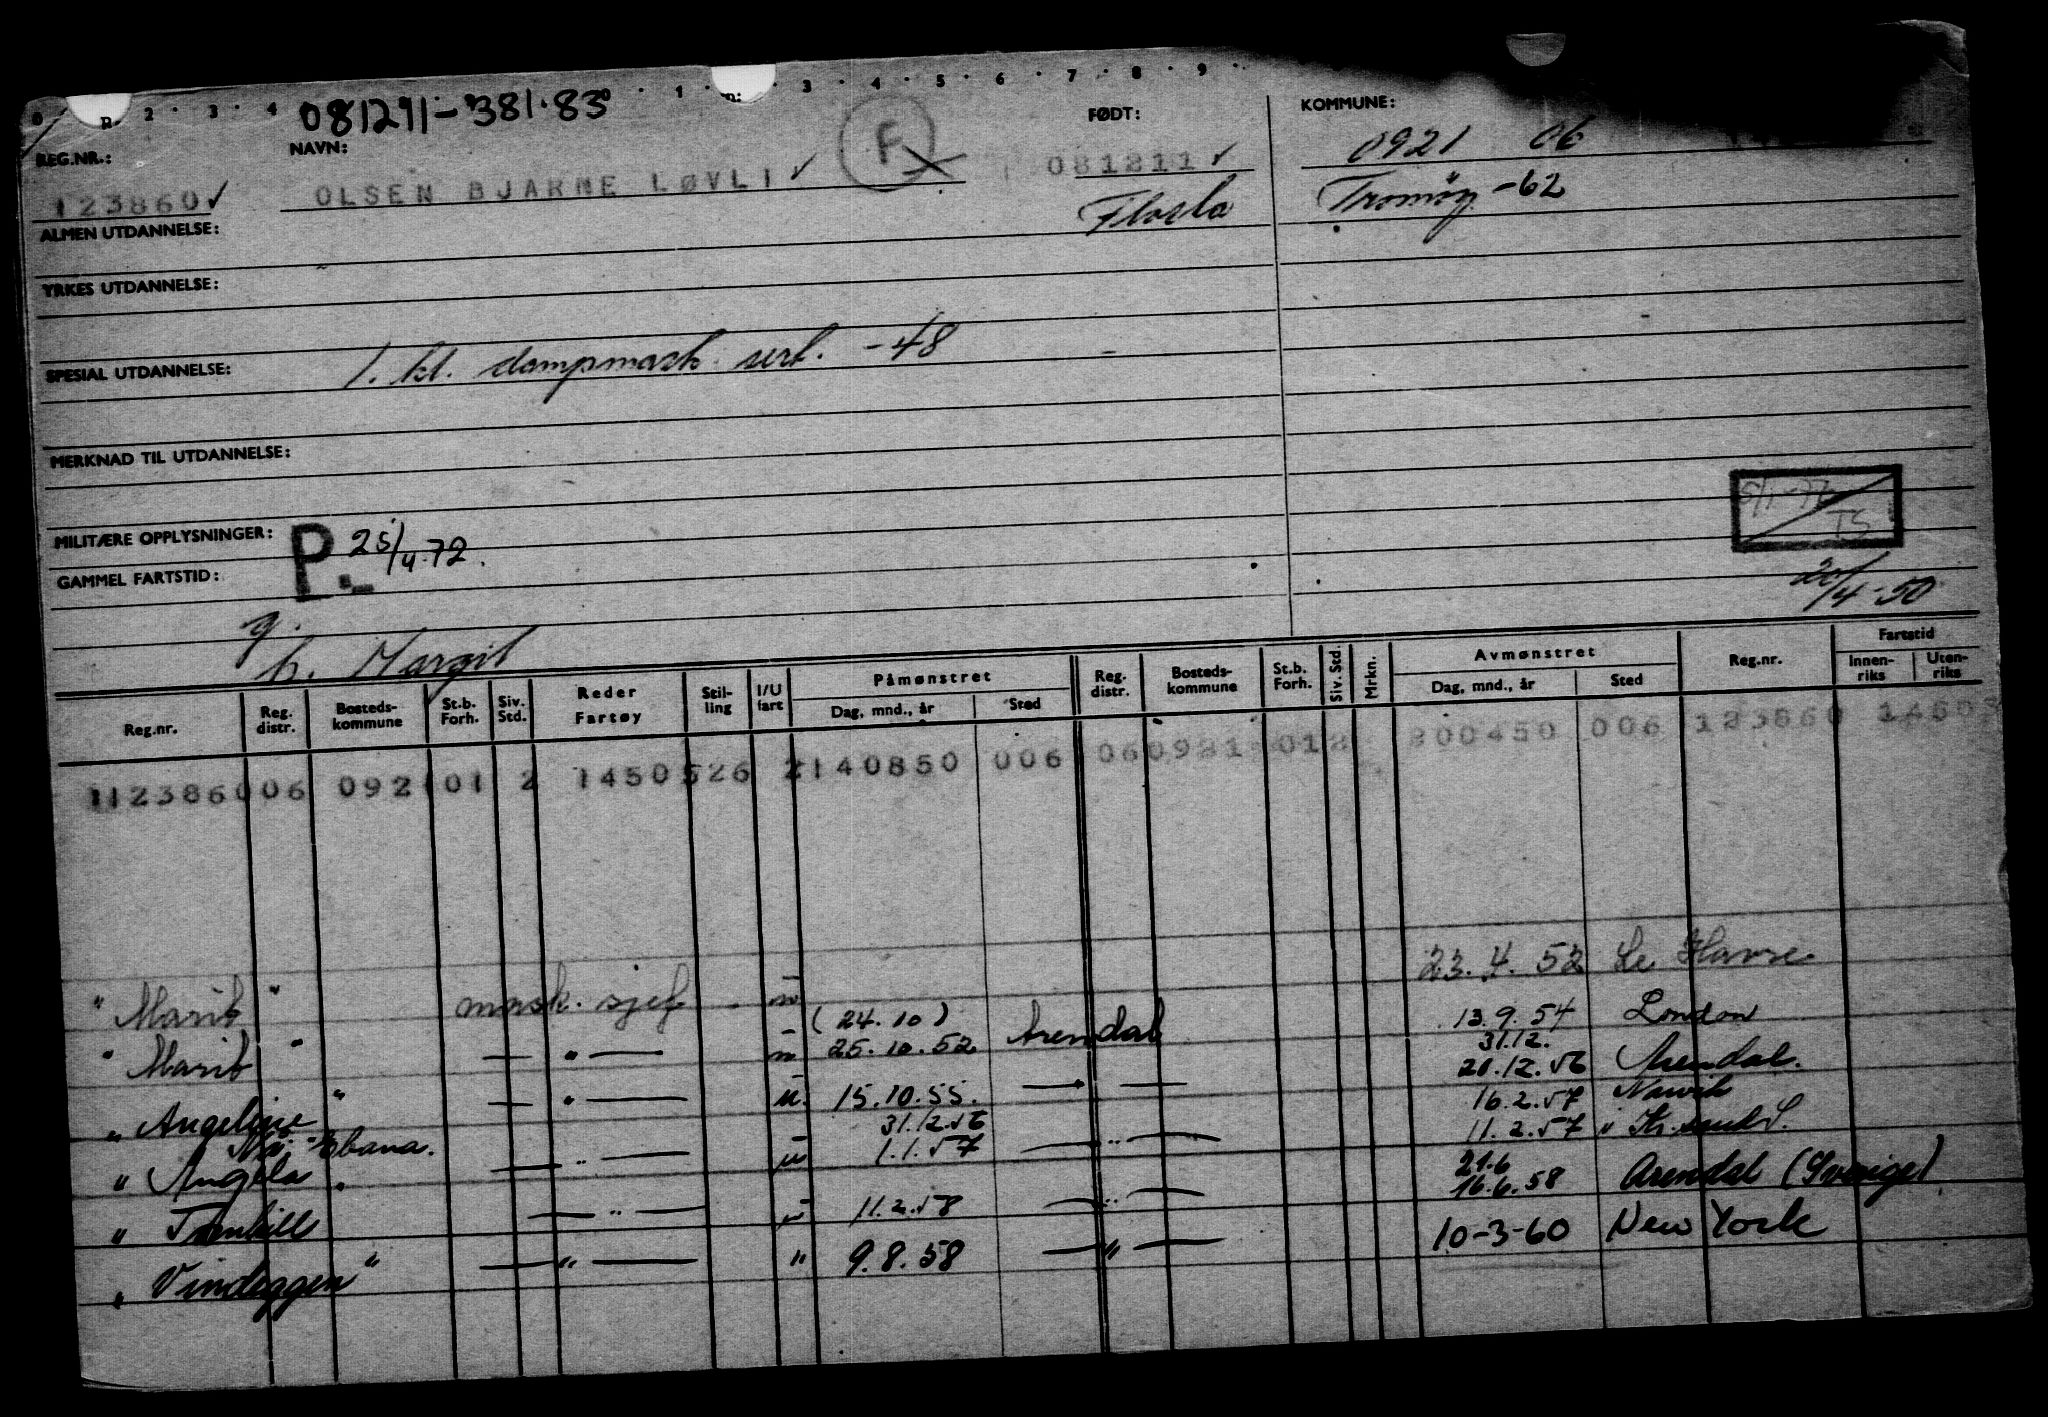 0 2 3 4 1 3 4 5 6 7 8 9
081211-381.83
F
REG.NR.: NAVN: FØDT: KOMMUNE:
0921 06
123860 OLSEN BJARNE LØVLI 081211
Flosta Tromøy -62
ALMEN UTDANNELSE:
YRKES UTDANNELSE:
SPESIAL UTDANNELSE: 1. kl. dampmask. sert. -48
MERKNAD TIL UTDANNELSE:
MILITÆRE OPPLYSNINGER: P. 25/4.72.
TS
GAMMEL FARTSTID:
20/4-50
g.
h. Margit
Reg.nr. Reg. distr. Bosteds-kommune St.b. Forh. Siv. Std. Reder Fartøy Stil-ling I/U fart Påmønstret Dag, mnd., år Sted Reg. distr. Bosteds-kommune St.b. Forh. Siv. Std. Mrkn. Avmønstret Dag, mnd., år Sted Reg.nr. Fartstid Innen-riks Uten-riks
1123860 06 0921 01 2 1450 526 2 140850 006 06 0921 01 2 200450 006 123860
" Marit " mask. sjef u 23.4.52 Le Havre.
(24.10)
" Marit " — " — u 25.10.52 Arendal 13.9.54 London
31.12.
" Angeline " — " — u. 15.10.55. — " — 20.12.56 Arendal.
31.12.56 16.2.57 Narvik
" Angela " — " — u 1.1.57 — " — 11.2.57 " Kr.sand S.
21.6
" Tornhill — " — u 11.2.58 — " — 16.6.58 Arendal (Sverige)
" Vindeggen " — " — " 9.8.58 — " — 10-3-60 New York